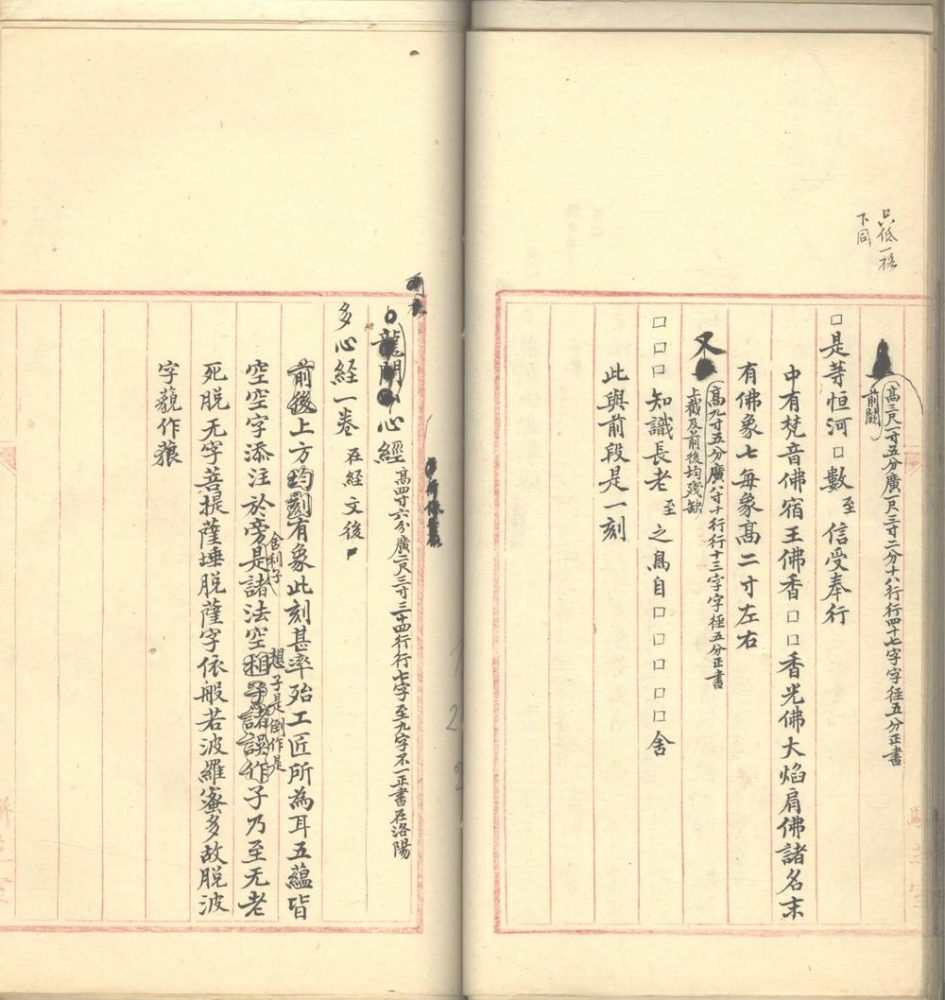 只低一格
下同
高三尺一寸五分廣一尺三寸二分十八行行四十七字字徑五分正書
前闕
□是等恒河□數至信受奉行
中有梵音佛宿王佛香□□香光佛大焰肩佛諸名末
有佛象七每象高二寸左右
又
高九寸五分廣八寸十行行十三字字徑五分正書
上截及前後均殘缺
□□□知識長老至之鳥自□□□□□舍
此與前段是一刻
龍門心經
高四寸六分廣二尺三寸三十四行行七字至九字不一正書在洛陽
多心經一卷在經文後
前後上方均刻有象此刻甚率殆工匠所為耳五蘊皆
空空字添注於旁舍利子是諸法空相
想子是倒作是
子乃至无老
死脱无字菩提薩埵脱薩字依般若波羅蜜多故脱波
字藐作䫉